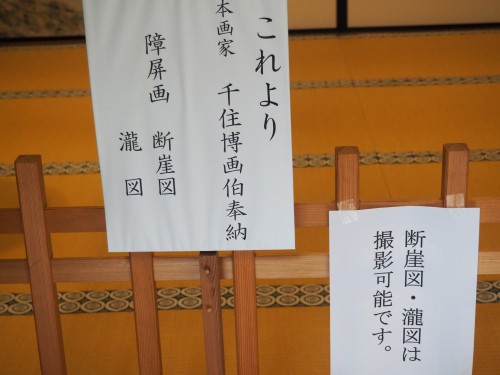 これより
本画家 千住博画伯奉納
障屏画 断崖図
瀧図
断崖図・瀧図は
撮影可能です。